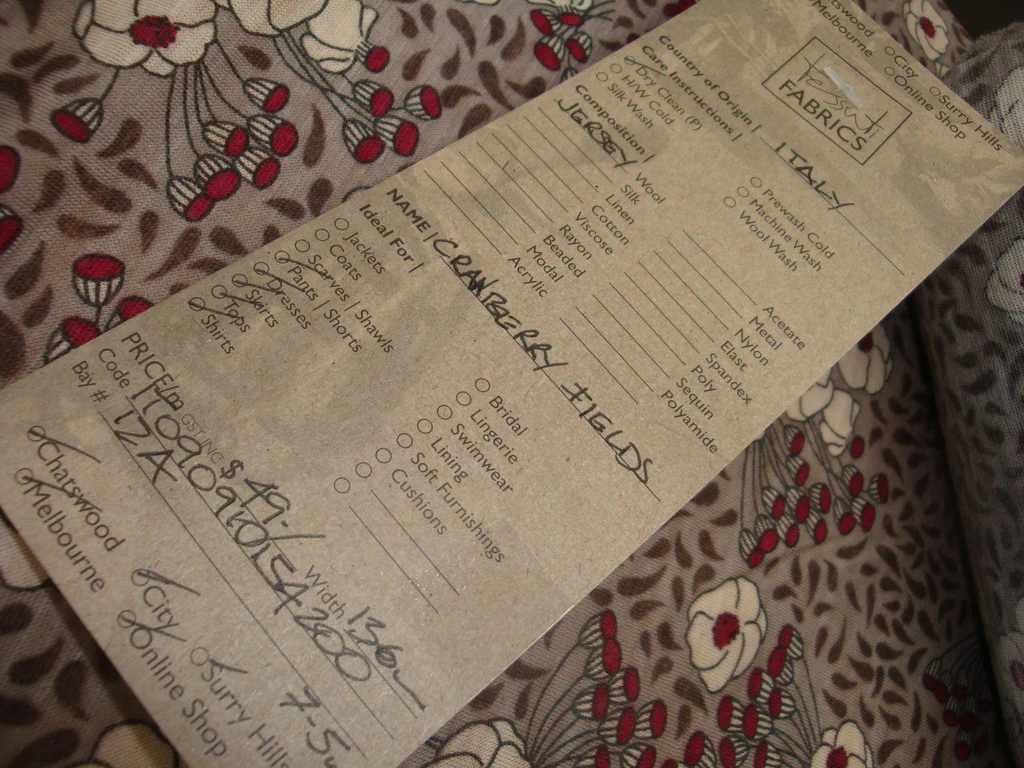 Chatswood City Surry Hills
Melbourne Online Shop
Tessuti
FABRICS
Country of Origin | ITALY
Care Instructions |
Dry Clean (P) Prewash Cold
H/W Cold Machine Wash
Silk Wash Wool Wash
Composition |
JERSEY Wool Acetate
Silk Metal
Linen Nylon
Cotton Elast
Viscose Spandex
Rayon Poly
Beaded Sequin
Modal Polyamide
Acrylic
NAME | CRANBERRY FIELDS
Ideal For |
Jackets Bridal
Coats Lingerie
Scarves | Shawls Swimwear
Pants | Shorts Lining
Dresses Soft Furnishings
Skirts Cushions
Tops
Shirts
PRICE/m GST INC $49.- Width 136
Code
Bay # 12A 7-5
Chatswood City Surry Hills
Melbourne Online Shop